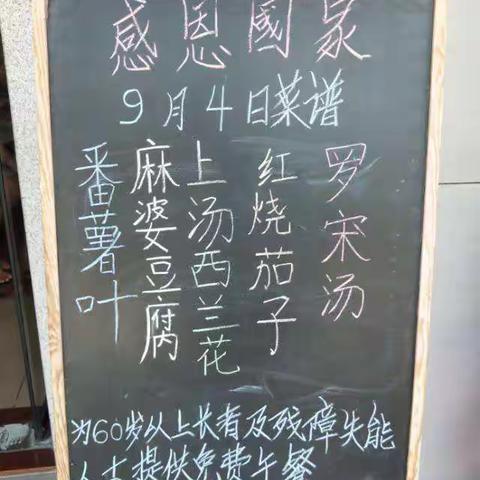 感恩國家
9月4日菜谱
番薯叶
麻婆豆腐
上汤西兰花
红烧茄子
罗宋汤
为60岁以上长者及残障失能
人士提供免费午餐